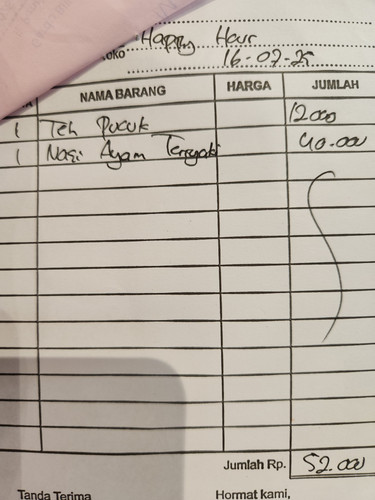 Happy Hour
TOKO 16-07-25
NAMA BARANG HARGA JUMLAH
1 Teh Pucuk 12000
1 Nasi Ayam Teriyaki 40.000
Jumlah Rp. 52.000
Tanda Terima Hormat kami,